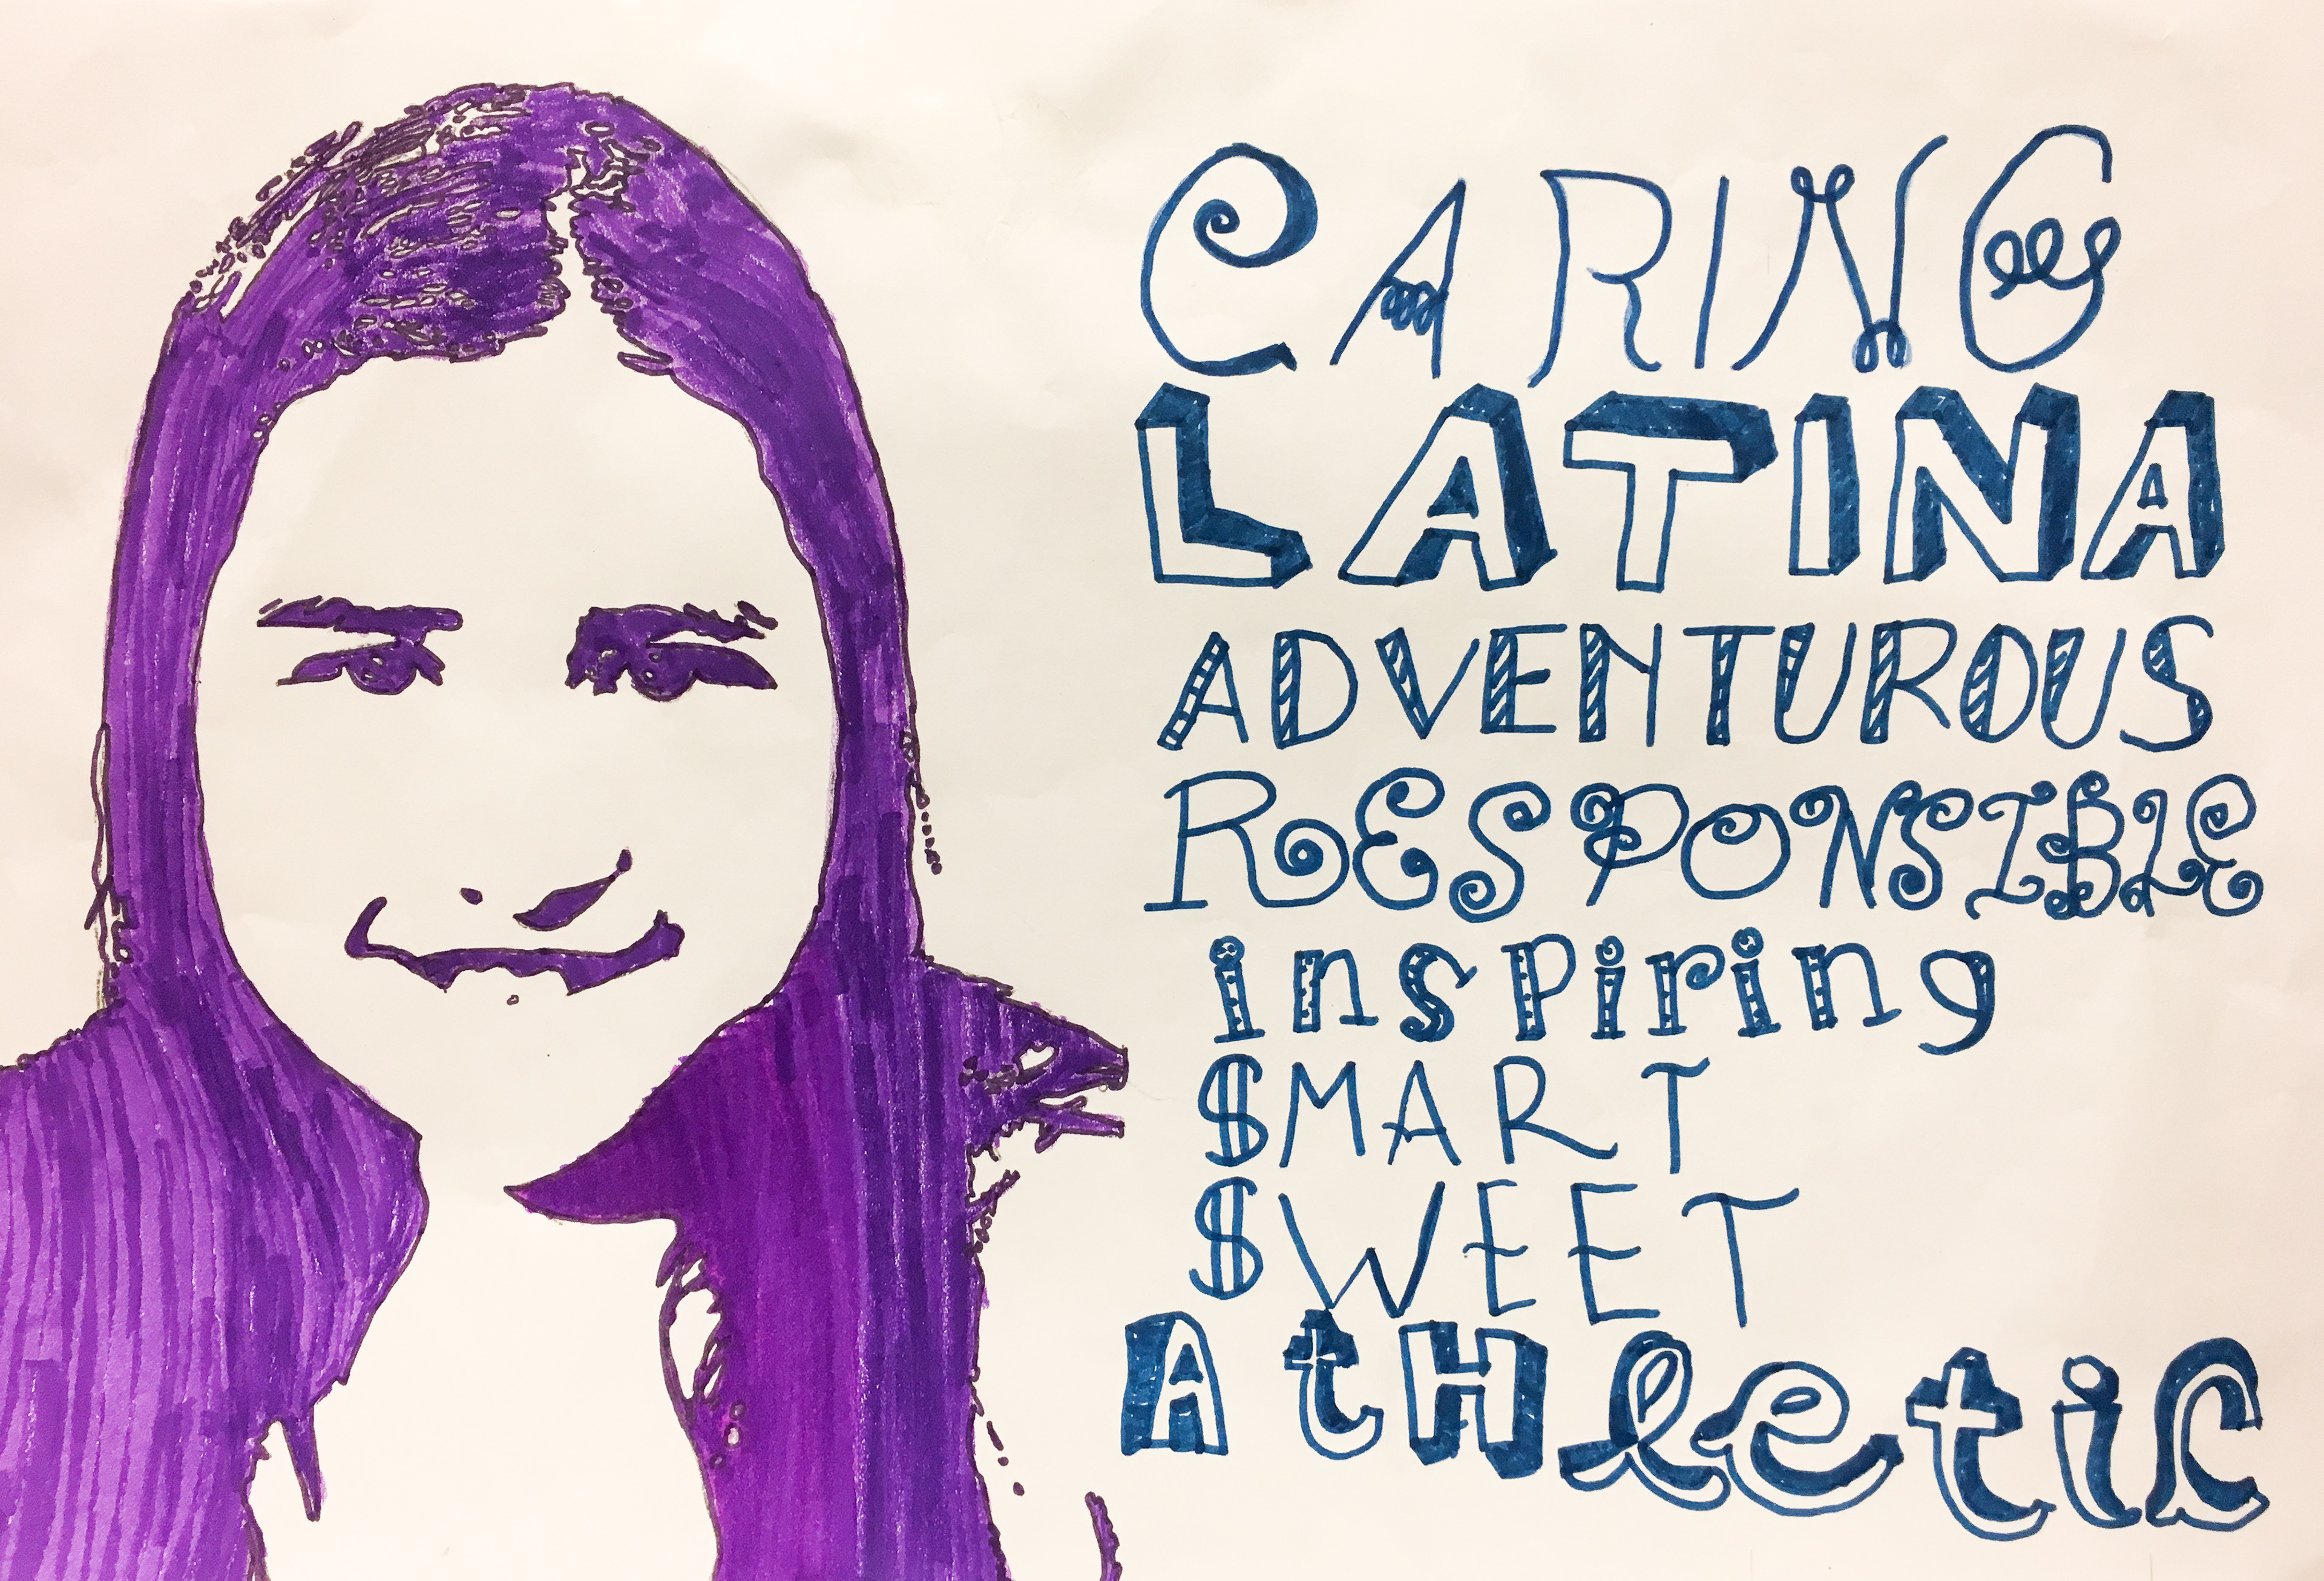 CARING
LATINA
ADVENTUROUS
RESPONSIBLE
inspiring
$MART
$WEET
AtHletic